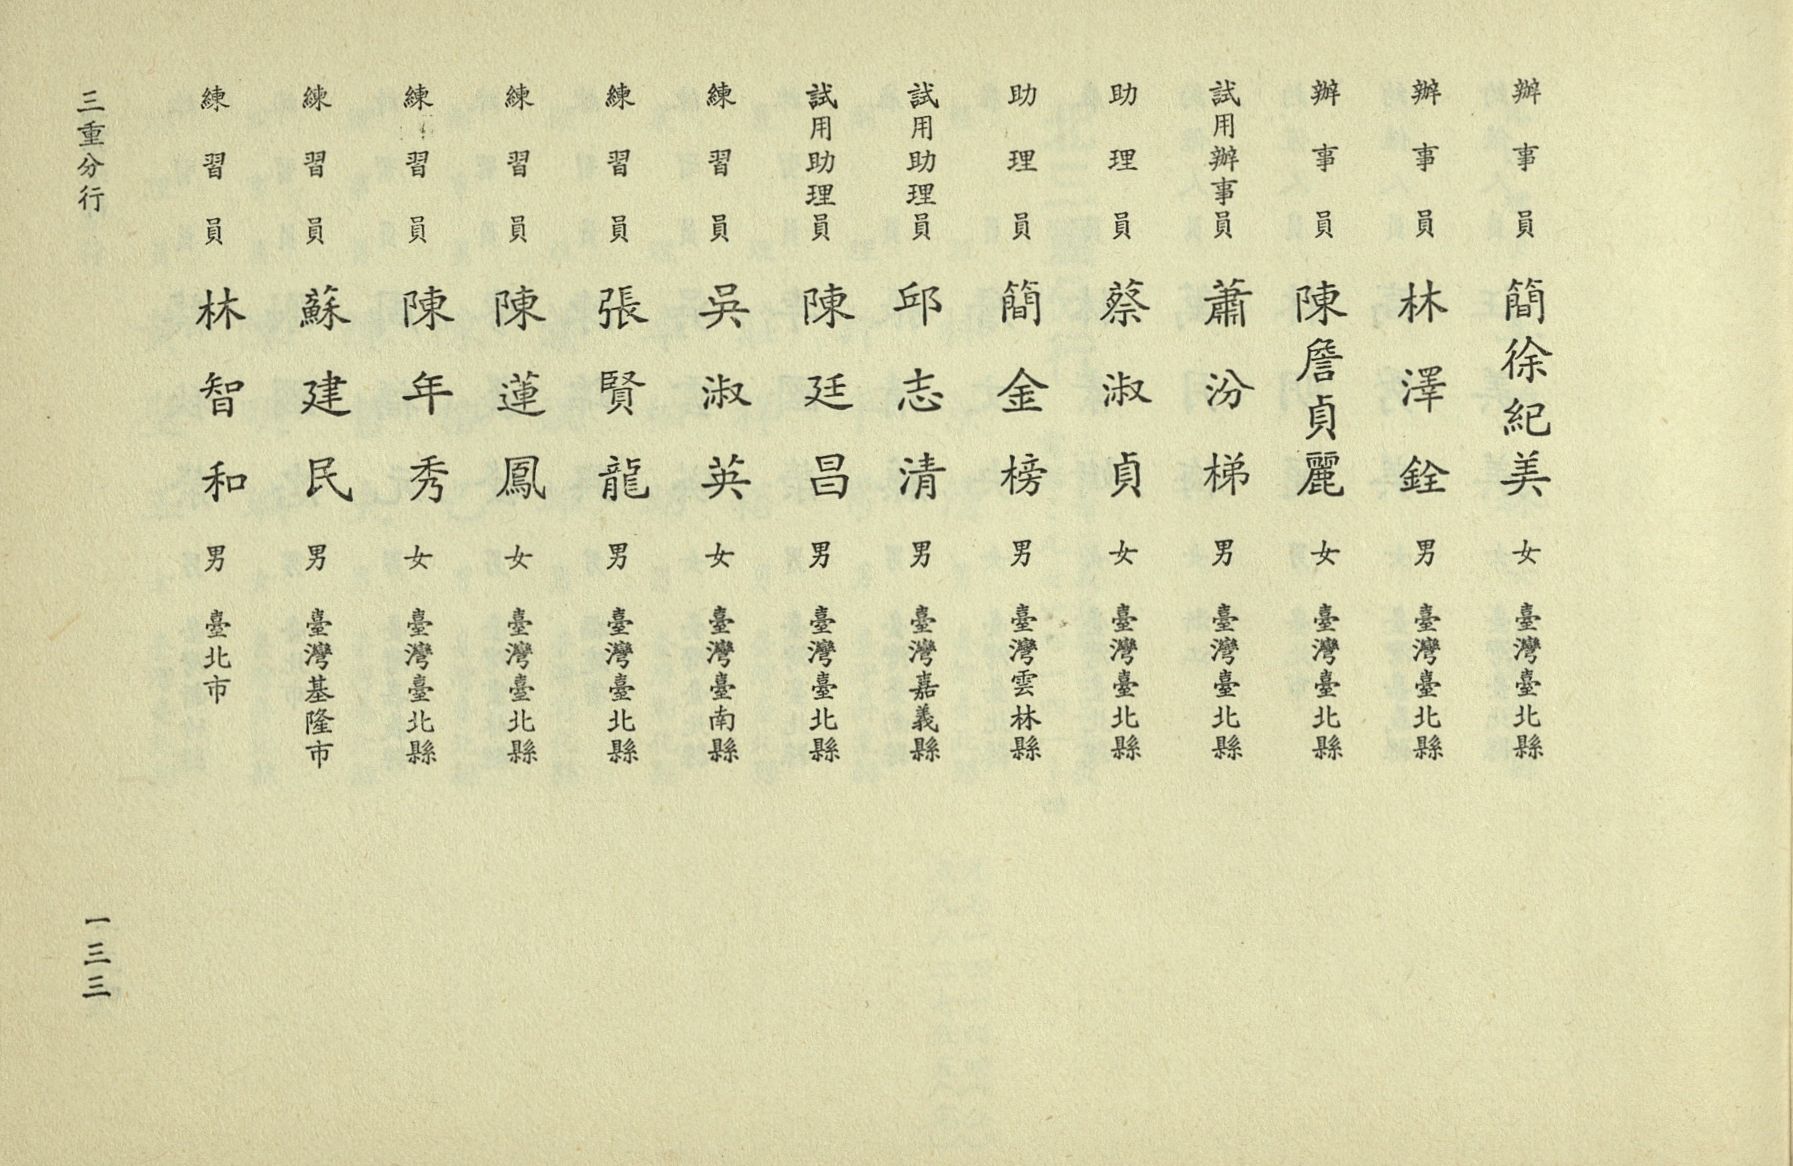 辦事員 簡徐紀美 女 臺灣臺北縣
辦事員 林澤銓 男 臺灣臺北縣
辦事員 陳詹貞麗 女 臺灣臺北縣
試用辦事員 蕭汾梯 男 臺灣臺北縣
助理員 蔡淑貞 女 臺灣臺北縣
助理員 簡金榜 男 臺灣雲林縣
試用助理員 邱志清 男 臺灣嘉義縣
試用助理員 陳廷昌 男 臺灣臺北縣
練習員 吳淑英 女 臺灣臺南縣
練習員 張賢龍 男 臺灣臺北縣
練習員 陳蓮鳳 女 臺灣臺北縣
練習員 陳年秀 女 臺灣臺北縣
練習員 蘇建民 男 臺灣基隆市
練習員 林智和 男 臺北市
三重分行
一三三